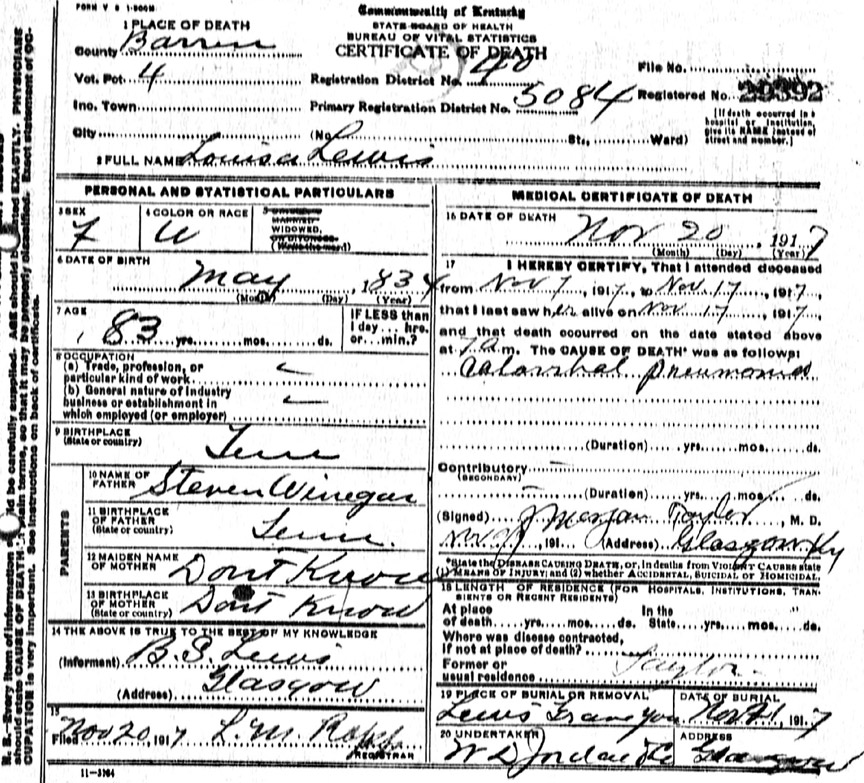 FORM V S 1-500M
Commonwealth of Kentucky
STATE BOARD OF HEALTH
BUREAU OF VITAL STATISTICS
CERTIFICATE OF DEATH
1 PLACE OF DEATH
County Barren
Vot. Pct 4
Registration District No. 40
File No.
Inc. Town
Primary Registration District No. 5084
Registered No. 29392
City
(No. St., Ward)
[If death occurred in a
hospital or institution,
give its NAME instead of
street and number.]
2 FULL NAME Louisa Lewis
PERSONAL AND STATISTICAL PARTICULARS
3 SEX
F
4 COLOR OR RACE
W
5
WIDOWED,
6 DATE OF BIRTH
May, 1834
(Month) (Day) (Year)
7 AGE
83 yrs. mos. ds.
IF LESS than
1 day... hrs.
or... min.?
8 OCCUPATION
(a) Trade, profession, or
particular kind of work
(b) General nature of industry
business or establishment in
which employed (or employer)
9 BIRTHPLACE
(State or country)
Tenn
PARENTS
10 NAME OF
FATHER
Steven Winegar
11 BIRTHPLACE
OF FATHER
(State or country)
Tenn.
12 MAIDEN NAME
OF MOTHER
Dont Know
13 BIRTHPLACE
OF MOTHER
(State or country)
Dont Know
14 THE ABOVE IS TRUE TO THE BEST OF MY KNOWLEDGE
(Informant) B.S. Lewis
(Address) Glasgow
15
Filed Nov 20, 1917 L.M.
REGISTRAR
11-3184
MEDICAL CERTIFICATE OF DEATH
16 DATE OF DEATH
Nov 20, 1917
(Month) (Day) (Year)
17 I HEREBY CERTIFY, That I attended deceased
from Nov 7, 1917, to Nov 17, 1917,
that I last saw her alive on Nov 17, 1917,
and that death occurred on the date stated above
at 7 a m. The CAUSE OF DEATH* was as follows:
Catarrhal pneumonia
(Duration) yrs. mos. ds.
Contributory
(SECONDARY)
(Duration) yrs. mos. ds.
(Signed) J Morgan Taylor, M. D.
Nov, 191 (Address) Glasgow Ky
*State the DISEASE CAUSING DEATH, or, in deaths from VIOLENT CAUSES state
(1) MEANS OF INJURY; and (2) whether ACCIDENTAL, SUICIDAL or HOMICIDAL.
18 LENGTH OF RESIDENCE (FOR HOSPITALS, INSTITUTIONS, TRAN-
SIENTS OR RECENT RESIDENTS)
At place In the
of death yrs. mos. ds. State yrs. mos. ds.
Where was disease contracted,
if not at place of death?
Former or
usual residence Taylor
19 PLACE OF BURIAL OR REMOVAL
Lewis Grave
DATE OF BURIAL
Nov 21, 1917
20 UNDERTAKER
W D Jordan
ADDRESS
Glasgow